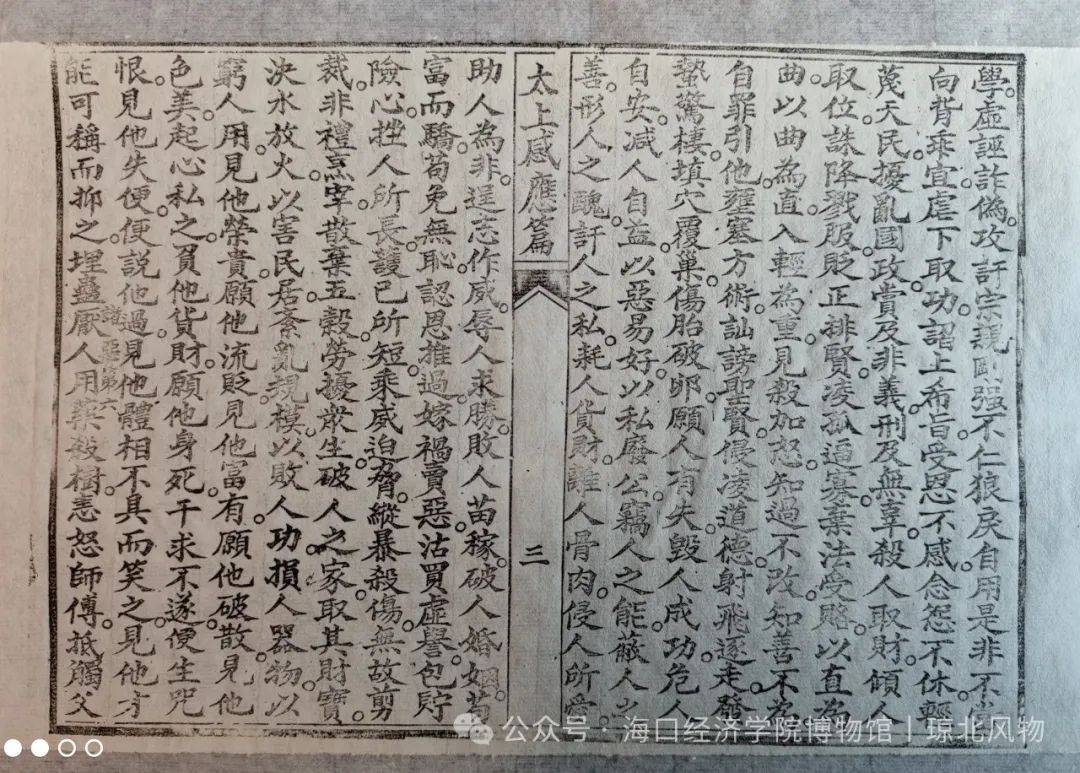 學。虛誣詐偽。攻訐宗親。剛强不仁。狼戾自用。是非不當
向背乖宜。虐下取功。諂上希旨。受恩不感。念怨不休。輕
蔑天民。擾亂國政。賞及非義。刑及無辜。殺人取財。傾人
取位。誅降戮服。貶正排賢。凌孤逼寡。棄法受賂。以直為
曲。以曲為直。入輕為重。見殺加怒。知過不改。知善不為
自罪引他。壅塞方術。訕謗聖賢。侵凌道德。射飛逐走。發
蟄驚棲。填穴覆巢。傷胎破卵。願人有失。毀人成功。危人
自安。减人自益。以惡易好。以私廢公。竊人之能。蔽人之
善。形人之醜。訐人之私。耗人貨財。離人骨肉。侵人所愛
太上感應篇
三
助人為非。逞志作威。辱人求勝。敗人苗稼。破人婚姻。苟
富而驕。苟免無恥。認恩推過。嫁禍賣惡。沽買虛譽。包貯
險心。挫人所長。護己所短。乘威迫脅。縱暴殺傷。無故剪
裁。非禮烹宰。散棄五穀。勞擾眾生。破人之家。取其財寶。
決水放火。以害民居。紊亂規模。以敗人功。損人器物。以
窮人用。見他榮貴。願他流貶。見他富有。願他破散。見他
色美。起心私之。負他貨財。願他身死。干求不遂。便生咒
恨。見他失便。便說他過。見他體相不具而笑之。見他才
諸惡第六
能可稱而抑之。埋蠱厭人。用藥殺樹。恚怒師傅。抵觸父
公众号 · 海口经济学院博物馆 | 琼北风物